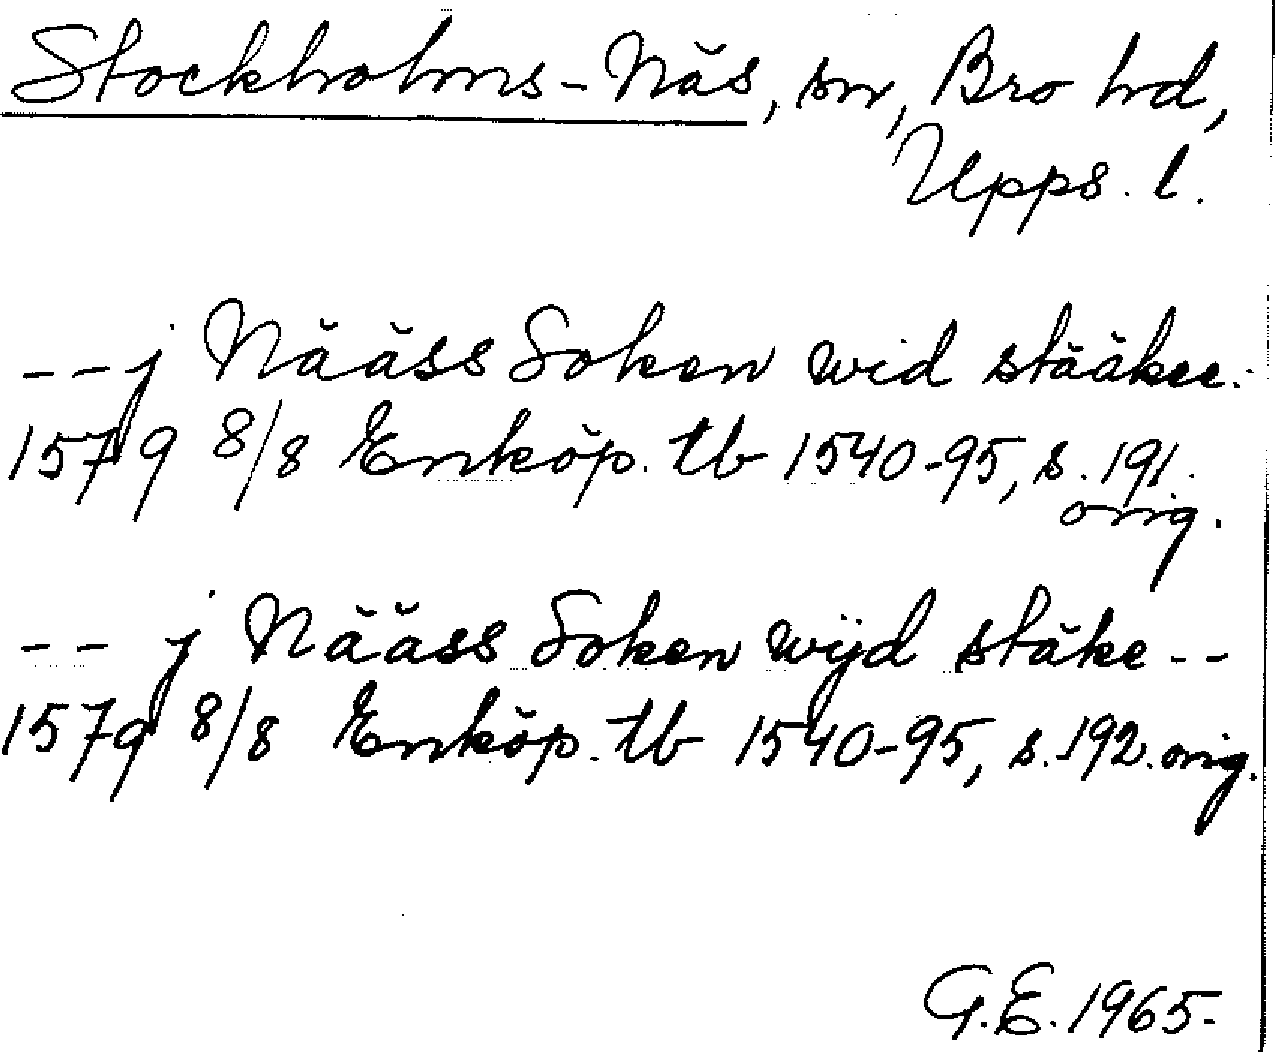 Stockholms-Näs, sn, Bro hd,
Upps. l.
-- j Nääss Soken wid stääkee.
1579 8/8 Enköp. tb 1540-95, s. 191.
orig.
-- j Nääss Soken wijd stäke --
1579 8/8 Enköp. tb 1540-95, s. 192. orig.
G.E. 1965.